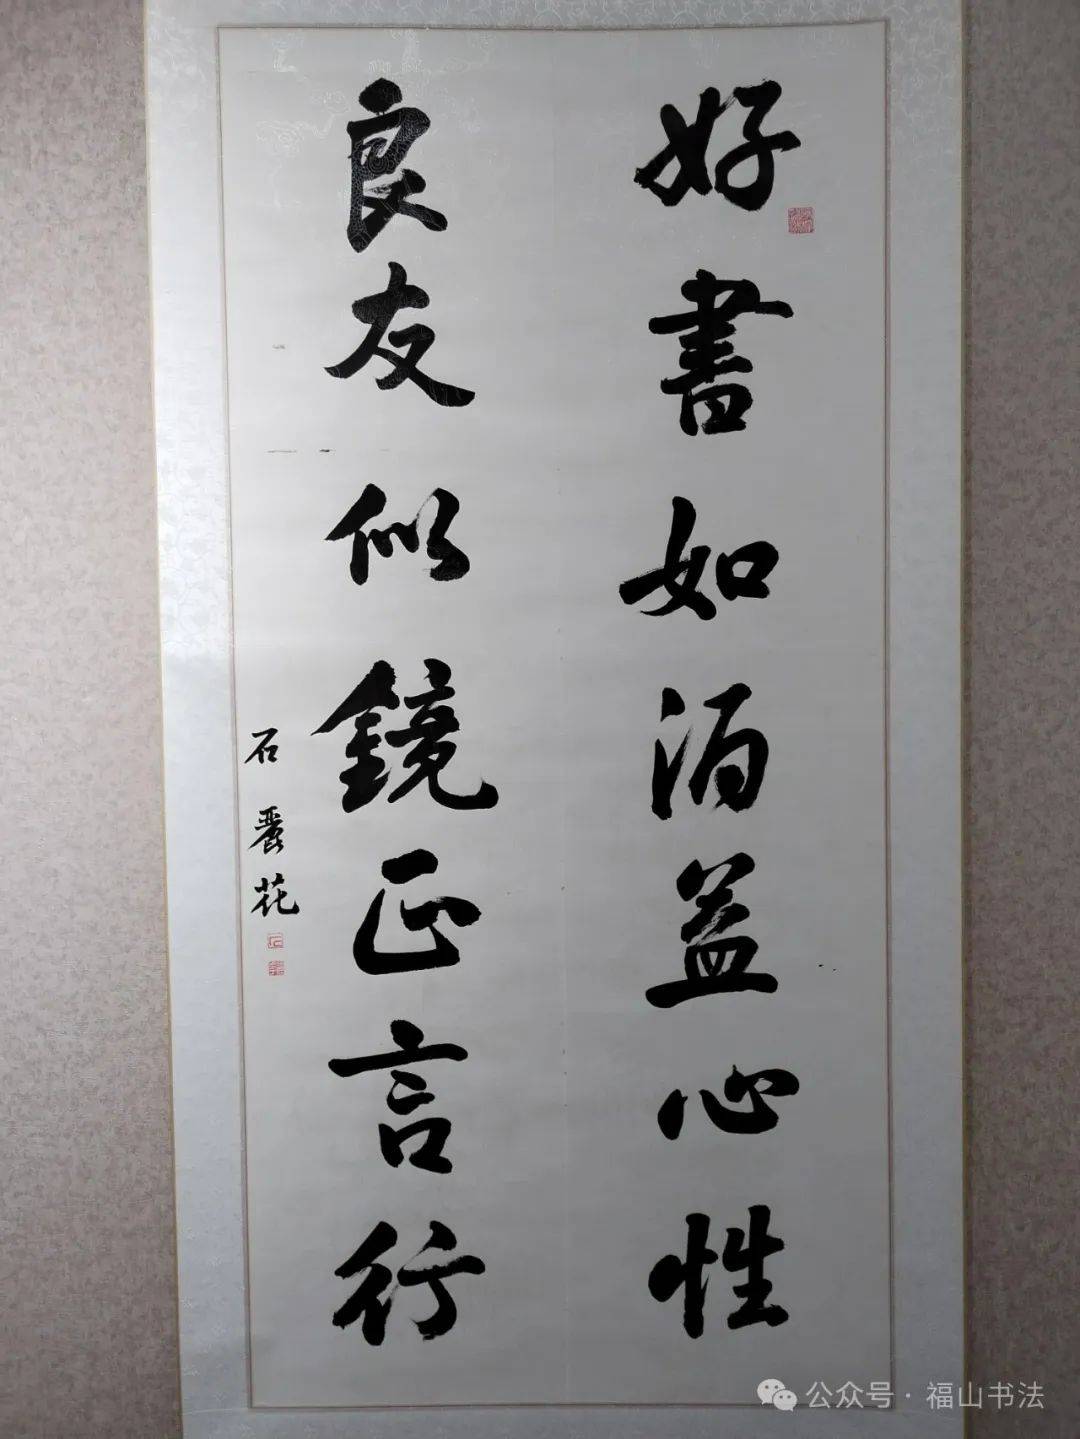 好書如酒益心性
良友似鏡正言行
石麗花
公众号·福山书法